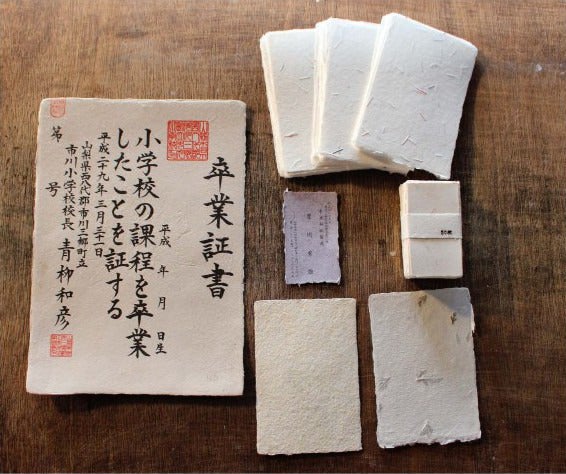 卒業証書
平成 年 月 日生
小学校の課程を卒業
したことを証する
平成二十九年三月三十一日
山梨県西八代郡市川三郷町立
市川小学校校長 青柳和彦
第 号